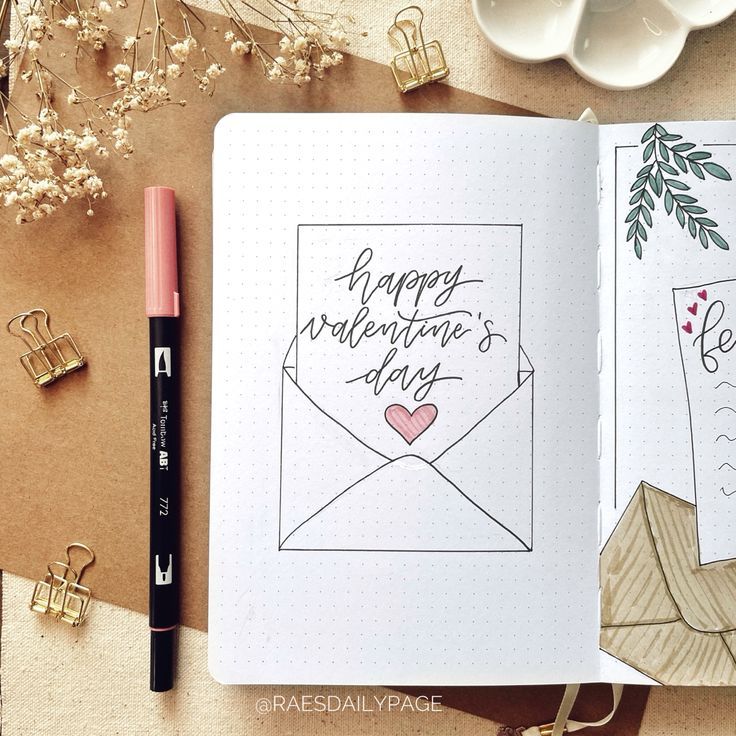 happy
valentine's
day
fe
Tombow
ABT
Acid Free
772
@RAESDAILYPAGE